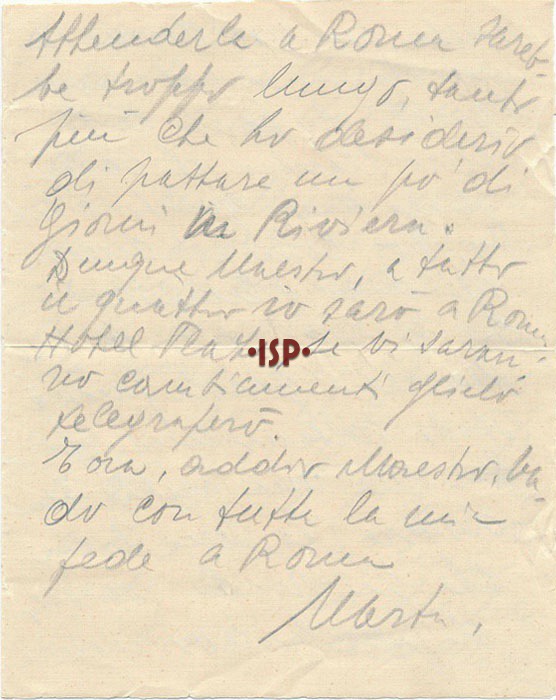 Attenderla a Roma sareb-
be troppo lungo, tanto
più che ho desiderio
di passare un po' di
giorni in Riviera.
Dunque Maestro, a tutto
il quattro io sarò a Roma
Hotel Plaza, se vi saran-
no cambiamenti glielo
telegraferò.
Ora, addio Maestro, va-
do con tutta la mia
fede a Roma
Marta.
·ISP·